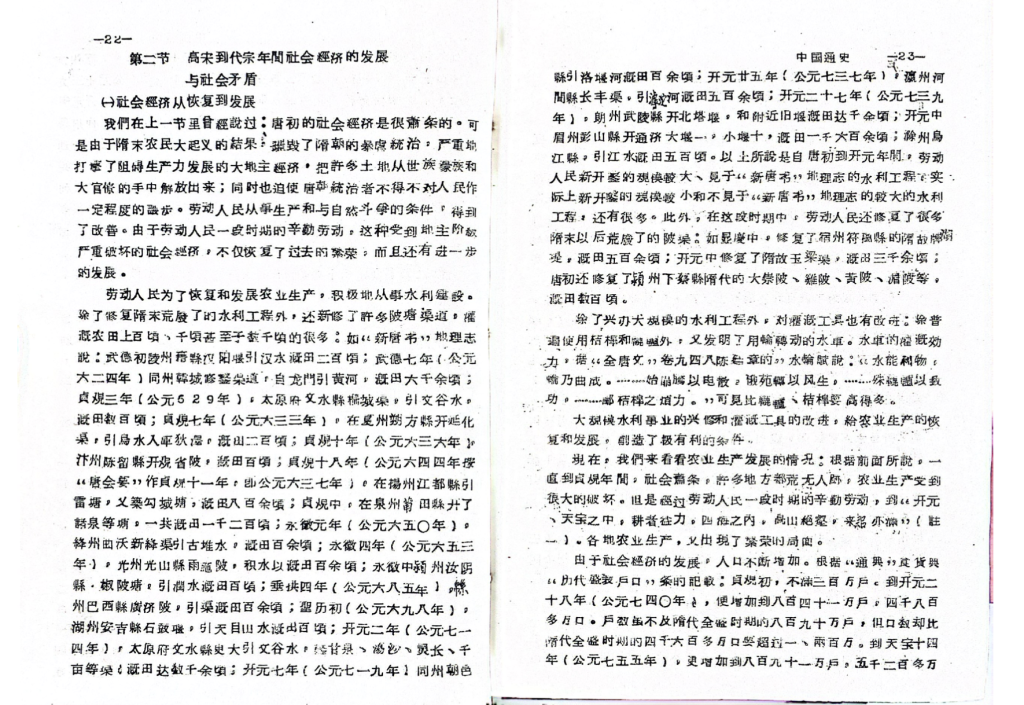 —22—
第二节 高宋到代宗年間社会經济的发展
与社会矛盾
㈠社会經济从恢复到发展
我們在上一节里曾經說过：唐初的社会經济是很蕭条的。可
是由于隋末农民大起义的結果，摧毁了隋朝的暴虐統治，严重地
打击了阻碍生产力发展的大地主經济，把許多土地从世族豪族和
大官僚的手中解放出来；同时也迫使唐朝統治者不得不对人民作
一定程度的讓步。劳动人民从事生产和与自然斗爭的条件，得到
了改善。由于劳动人民一段时期的辛勤劳动，这种受到地主阶級
严重破坏的社会經济，不仅恢复了过去的繁荣，而且还有进一步
的发展。
劳动人民为了恢复和发展农业生产，积极地从事水利建設。
除了修复隋末荒廢了的水利工程外，还新修了許多陂塘渠道，灌
溉农田上百頃、千頃甚至于数千頃的很多。如“新唐书”地理志
說：武德初陵州籍縣汉阳堰引汉水溉田二百頃；武德七年（公元
六二四年）同州韓城修整渠道，自龙門引黄河，溉田六千余頃；
貞观三年（公元629年），太原府文水縣柵城渠，引文谷水，
溉田数百頃；貞观七年（公元六三三年），在夏州朔方縣开延化
渠，引烏水入庫狄澤，溉田二百頃；貞观十年（公元六三六年）
汴州陈留縣开观省陂，溉田百頃；貞观十八年（公元六四四年按
“唐会要”作貞观十一年，即公元六三七年），在揚州江都縣引
雷塘，又築勾城塘，溉田八百余頃；貞观中，在泉州莆田縣开了
諸泉等塘，一共溉田一千二百頃；永徽元年（公元六五〇年），
絳州曲沃新絳渠引古堆水，溉田百余頃；永徽四年（公元六五三
年），光州光山縣雨施陂，积水以溉田百余頃；永徽中颍州汝阴
縣，椒陂塘，引潤水溉田百頃；垂拱四年（公元六八五年），綿
州巴西縣廣济陂，引渠溉田百余頃；聖历初（公元六九八年），
湖州安吉縣石鼓堰，引天目山水溉田百頃；开元二年（公元七一
四年），太原府文水縣史大引文谷水，
亩等渠（溉田达数千余頃；开元七年（公元七一九年）同州朝邑
中国通史 —23—
縣引洛堰河溉田百余頃；开元廿五年（公元七三七年），瀛州河
間縣长丰渠，引滹沱河溉田五百余頃；开元二十七年（公元七三九
年），朗州武陵縣开北塔堰，和附近旧堰溉田达千余頃；开元中
眉州彭山縣开通济大堰一，小堰十，溉田一千六百余頃；滁州烏
江縣，引江水溉田五百頃。以上所說是自唐初到开元年間，劳动
人民新开鑿的规模較大、見于“新唐书”地理志的水利工程，实
际上新开鑿的规模較小和不見于“新唐书”地理志的較大的水利
工程，还有很多。此外，在这段时期中，劳动人民还修复了很多
隋末以后荒廢了的陂渠。如显慶中，修复了宿州符离縣的隋故牌湖
堤，溉田五百余頃；开元中修复了隋故玉梁渠，溉田三千余頃；
唐初还修复了颍州下蔡縣隋代的大崇陂、雞陂、黄陂、湄陂等，
溉田数百頃。
除了兴办大规模的水利工程外，对灌溉工具也有改进：除普
遍使用桔槔和轆轤外，又发明了用輪轉动的水車。水車的灌溉効
力，据“全唐文”卷九四八陈結章的“水輪賦說：“水能利物，
輪乃曲成。………始崩騰以电散，俄宛轉以风生，………殊轆轤以致
功，………鄙桔槔之煩力。”可見比轆轤、桔槔要高得多。
大规模水利事业的兴修和灌溉工具的改进，給农业生产的恢
复和发展，創造了极有利的条件。
現在，我們来看看农业生产发展的情况：根据前面所說，一
直到貞观年間，社会蕭条，許多地方都荒无人烟，农业生产受到
很大的破坏。但是經过劳动人民一段时期的辛勤劳动，到“开元
、天宝之中，耕者益力。四海之内，高山絕壑，耒耜亦滿”（註
一）。各地农业生产，又出現了繁荣的局面。
由于社会經济的发展，人口不断增加。根据“通典”食貨典
“历代盛衰戶口”条的記載：貞观初，不滿三百万戶，到开元二
十八年（公元七四〇年），便增加到八百四十一万戶，四千八百
多万口。戶数虽不及隋代全盛时期的八百九十万戶，但口数却比
隋代全盛时期的四千六百多万口要超过一、兩百万。到天宝十四
年（公元七五五年），更增加到八百九十一万戶，五千二百多万